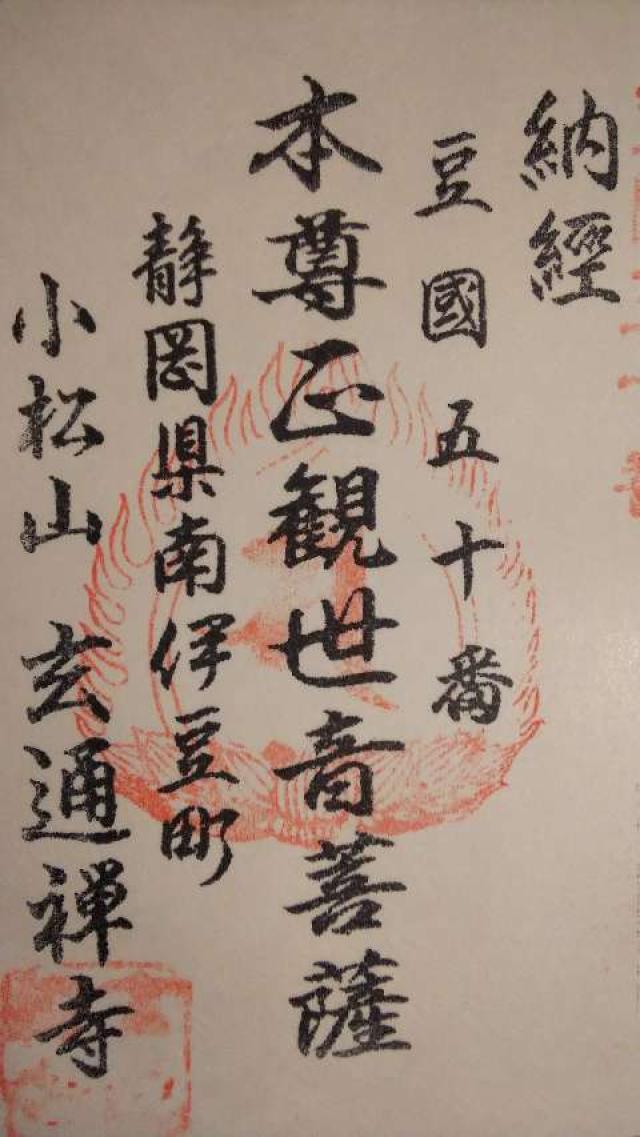 納經
豆國五十番
本尊正観世音菩薩
静岡県南伊豆町
小松山 玄通禅寺